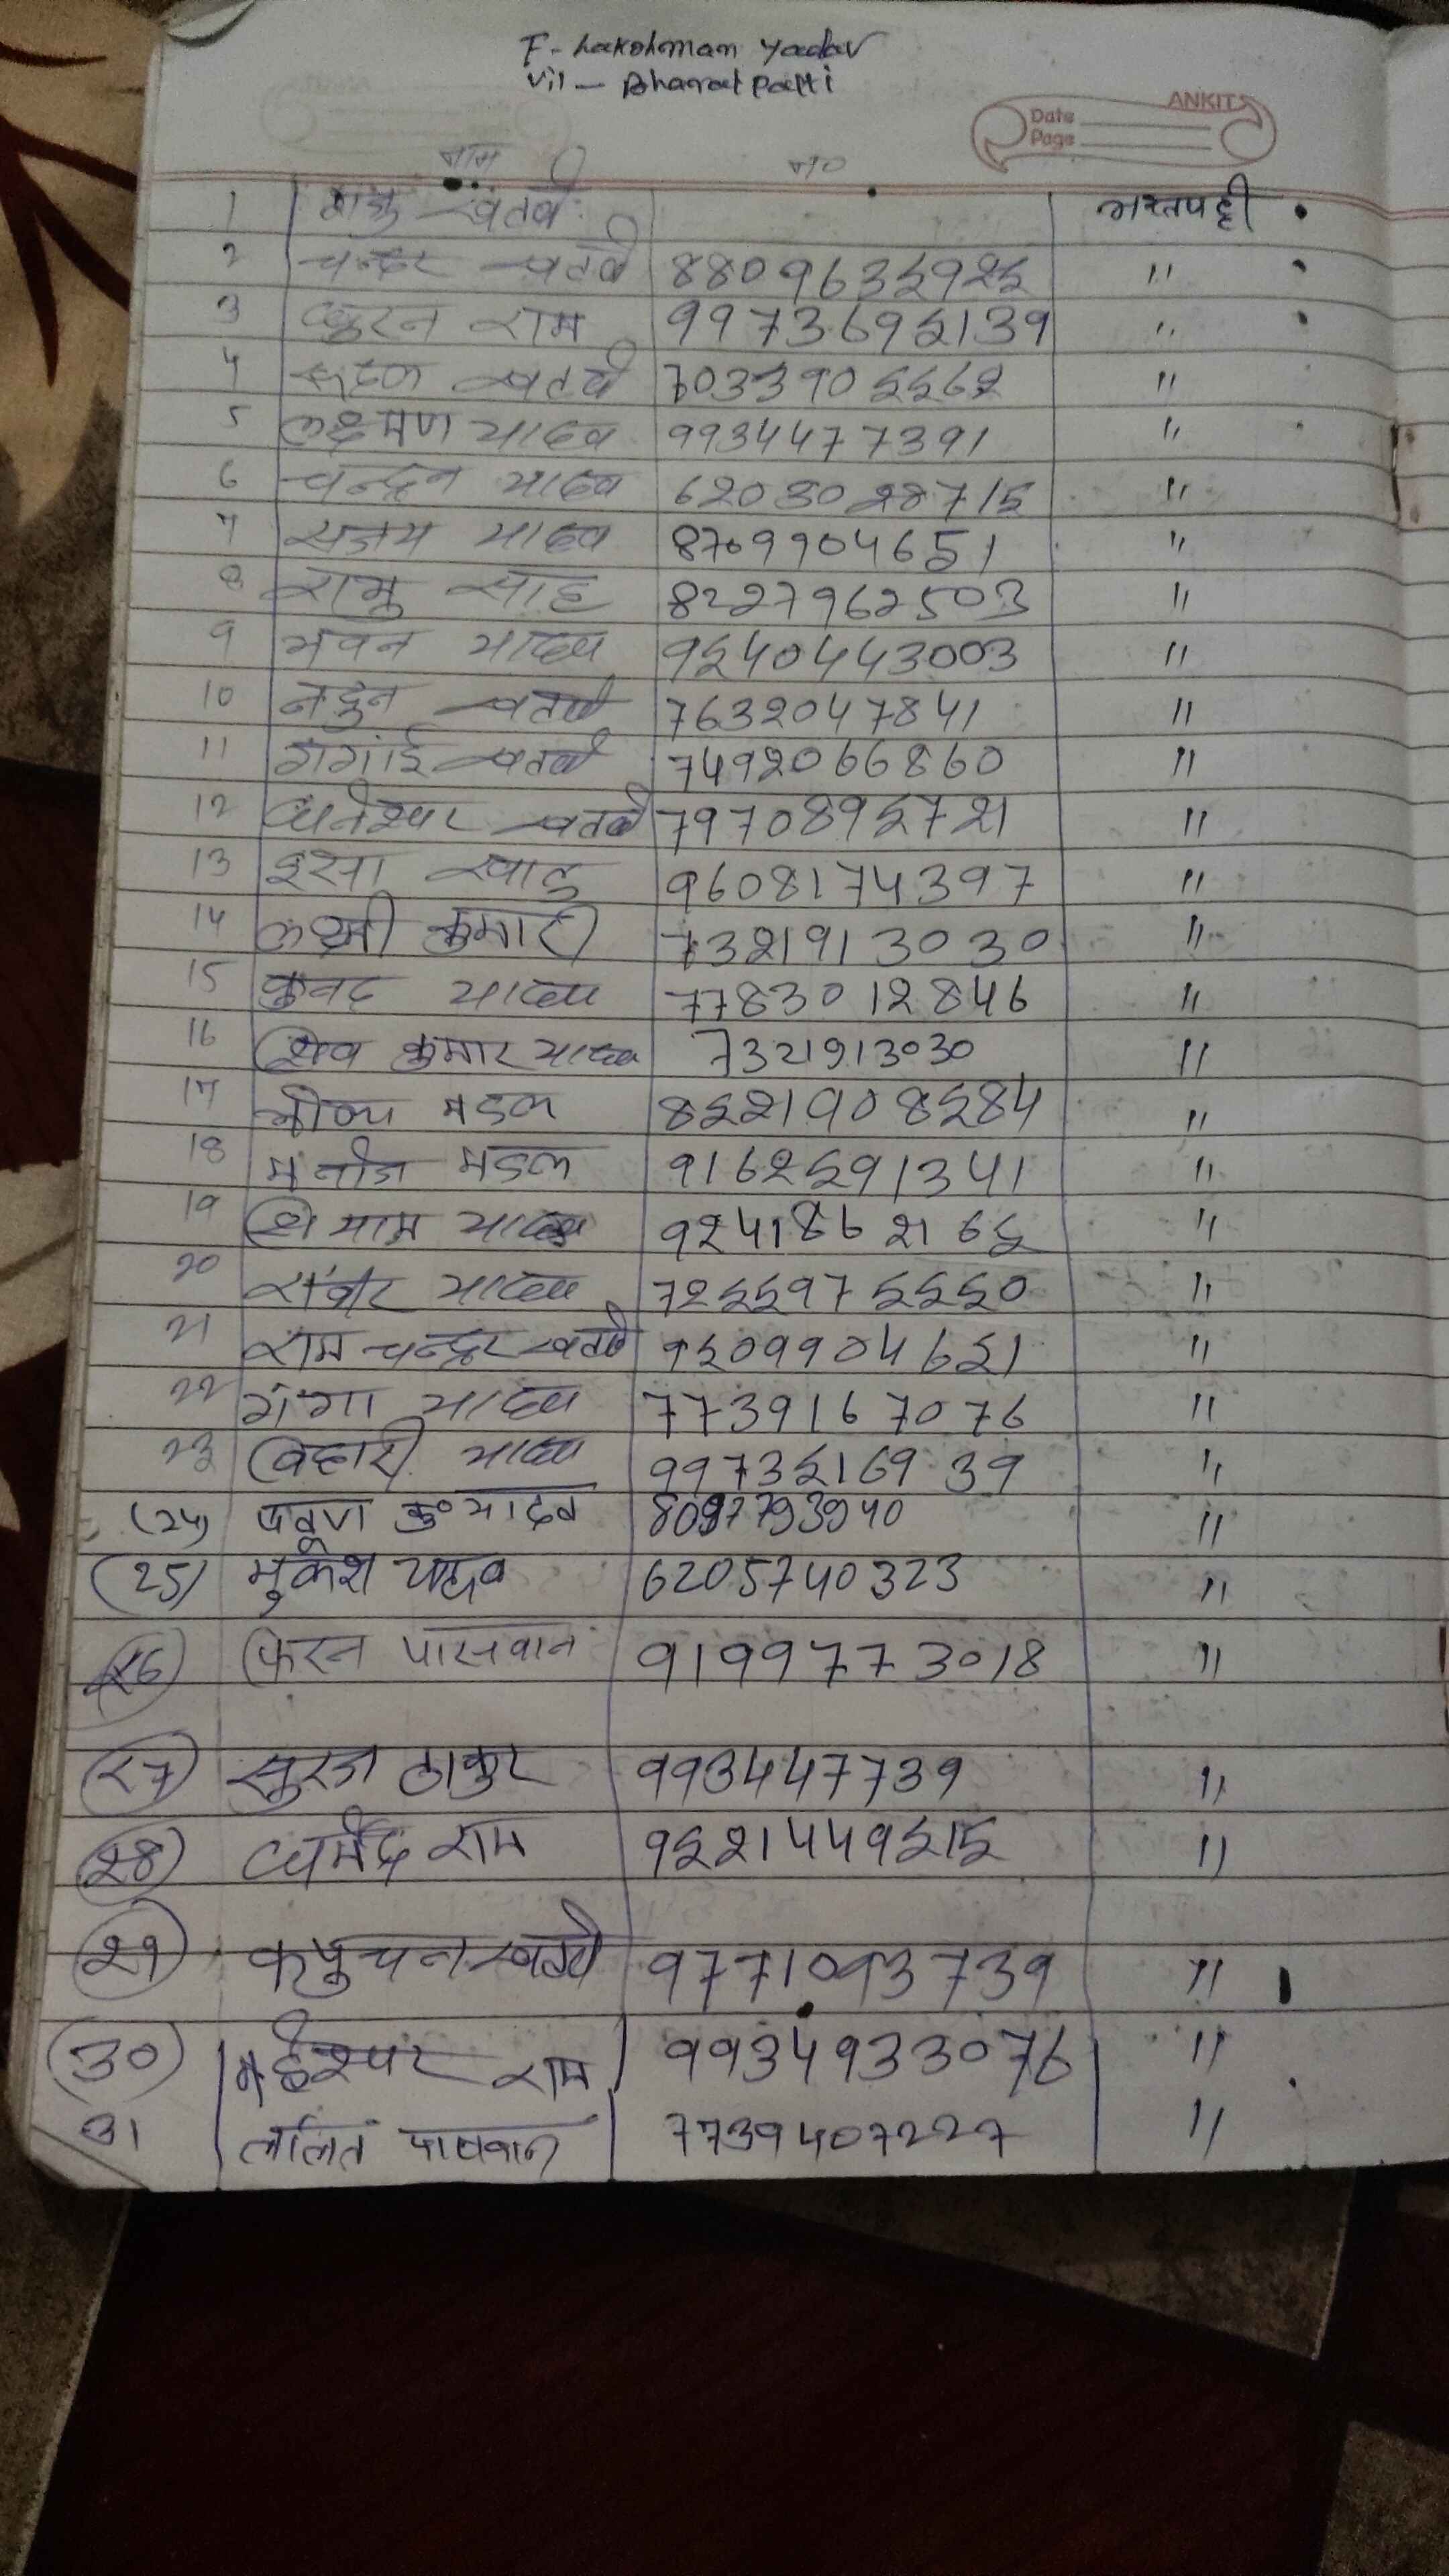 F- Lakshman Yadav
Vil - Bharat patti
ANKIT
Date
Page
नाम नo
1 खतवे भरतपट्टी
2 चन्दर खतवे 8809635925 "
3 राम 9973695139 "
4 खतवे 7033905562 "
5 लक्ष्मण यादव 9934477391 "
6 चन्दन यादव 6203028715 "
7 संजय यादव 8709904651 "
8 रामु साह 8227962503 "
9 यादव 9540443003 "
10 खतवे 7632047841 "
11 गंगाई खतवे 7492066860 "
12 खतवे 7970895721 "
13 9608174397 "
14 लक्ष्मी कुमारी 7321913030 "
15 यादव 7783012846 "
16 शिव कुमार यादव 7321913030 "
17 मंडल 8521908584 "
18 मनोज मंडल 9162591341 "
19 शियाम यादव 9241862165 "
20 यादव 7255975550 "
21 राम चन्द्रर खतवे 9509904651 "
22 गंगा यादव 7739167076 "
23 बिहारी यादव 9973516939 "
(24) कु० यादव "
(25) मुकेश यादव 6205740323 "
26 फिरन पासवान 9199773018 "
27 सुरज ठाकुर 993447739 "
28 धर्मेंद्र राम 9521449515 "
29 खतवे 9771093739 "
30 महेश्वर राम 9934933076 "
31 ललित पासवान 7739407227 "